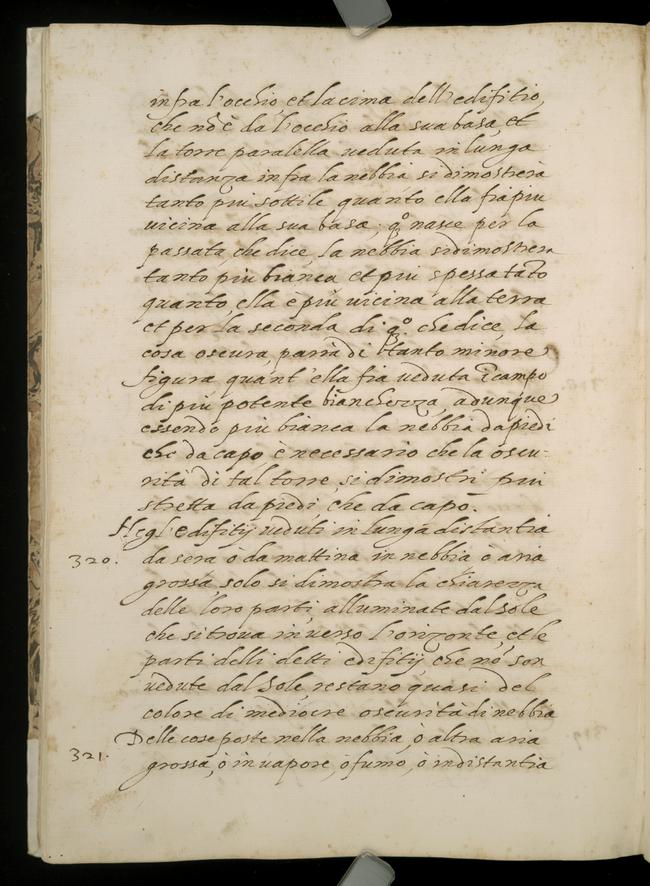 infra l'occhio, et la cima dell'edifitio,
che nõ è da l'occhio alla sua basa, et
la torre paralella veduta in lunga
distanza infra la nebbia si dimostrerà
tanto più sottile quanto ella fia piu
vicina alla sua basa; q.º nasce per la
passata che dice, la nebbia si dimostrera
tanto più bianca et più spessa tãto
quanto, ella è più vicina alla terra
et per la seconda di q.º che dice, la
cosa oscura, parrà di tanto minore
figura quant'ella fia veduta ĩ campo
di più potente bianchezza, adunque
essendo più bianca la nebbia da piedi
che da capo, è necessario che la oscu-
rità di tal torre, si dimostri piu
stretta da piedi, che da capo.
Negl'Edifitij veduti in lunga distantia
320. da sera ò da mattina in nebbia ò aria
grossa, solo si dimostra la chiarezza
delle loro parti, alluminate dal sole
che si trova inverso l'orizonte, et le
parti delli detti edifitij che nõ son
vedute dal Sole, restano quasi del
colore di mediocre oscurità di nebbia
Delle cose poste nella nebbia, ò altra aria
321. grossa, ò in vapore, ò fumo, ò in distantia